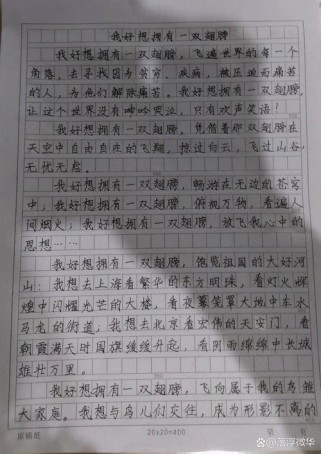 我好想拥有一双翅膀
我好想拥有一双翅膀，飞遍世界的每一个
角落。去寻找因为贫穷、疾病、被压迫而痛苦
的人，为他们解除痛苦。我好想拥有一双翅膀，
让这个世界没有呻吟哭泣，只有欢声笑语！
我好想拥有一双翅膀，凭借着那双翅膀在
天空中自由自在的飞翔。掠过白云，飞过山谷，
无忧无虑。
我好想拥有一双翅膀，畅游在无边的苍穹
中；我好想拥有一双翅膀，俯视万物，看遍人
间烟火；我好想拥有一双翅膀，放飞我心中的
思想……
我好想拥有一双翅膀，饱览祖国的大好河
山：我想去上海看繁华的东方明珠，看灯火辉
煌中闪耀光芒的大楼，看夜幕笼罩大地中车水
马龙的街道；我想去北京看宏伟的天安门，看
朝霞满天时国旗缓缓升起，看阴雨绵绵中长城
雄壮万里。
我好想拥有一双翅膀，飞向属于我的鸟雏
大家庭。我想与鸟儿们交往，成为形影不离的
原稿纸 20×20=400 第 页
@落浮微华